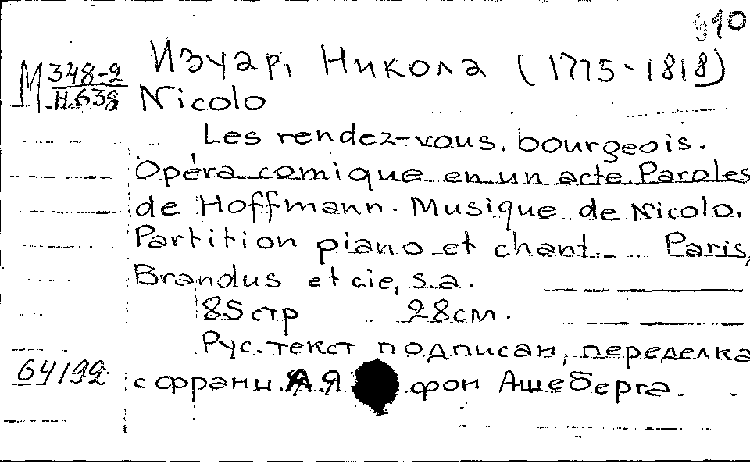 910
Изуар, Никола (1775-1818)
М 348-2
Н.638
Nicolo
Les rendez-vous. bourgeois.
Opéra comique en un acte Paroles
de Hoffmann. Musique de Nicolo.
Partition piano et chant. Paris,
Brandus et cie, s.a.
85 стр 28 см.
Рус. текст подписан, переделка
64192
с франц. А Я фон Ашеберга.